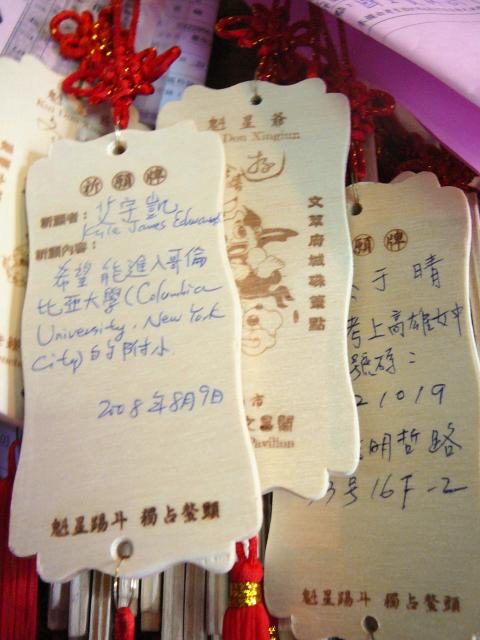 祈願牌
祈願者：艾宇凱
Kyle James Edwards
祈願內容：
希望能進入哥倫
比亞大學(Columbia
University, New York
City)的附小
2008年8月9日
魁星踢斗 獨占鰲頭
魁星爺
Don Xingjun
文萃府城硃筆點
市
文昌閣
Pavilion
願牌
于晴
考上高雄女中
號碼：
21019
明哲路
3号16F-2
魁星踢斗 獨占鰲頭